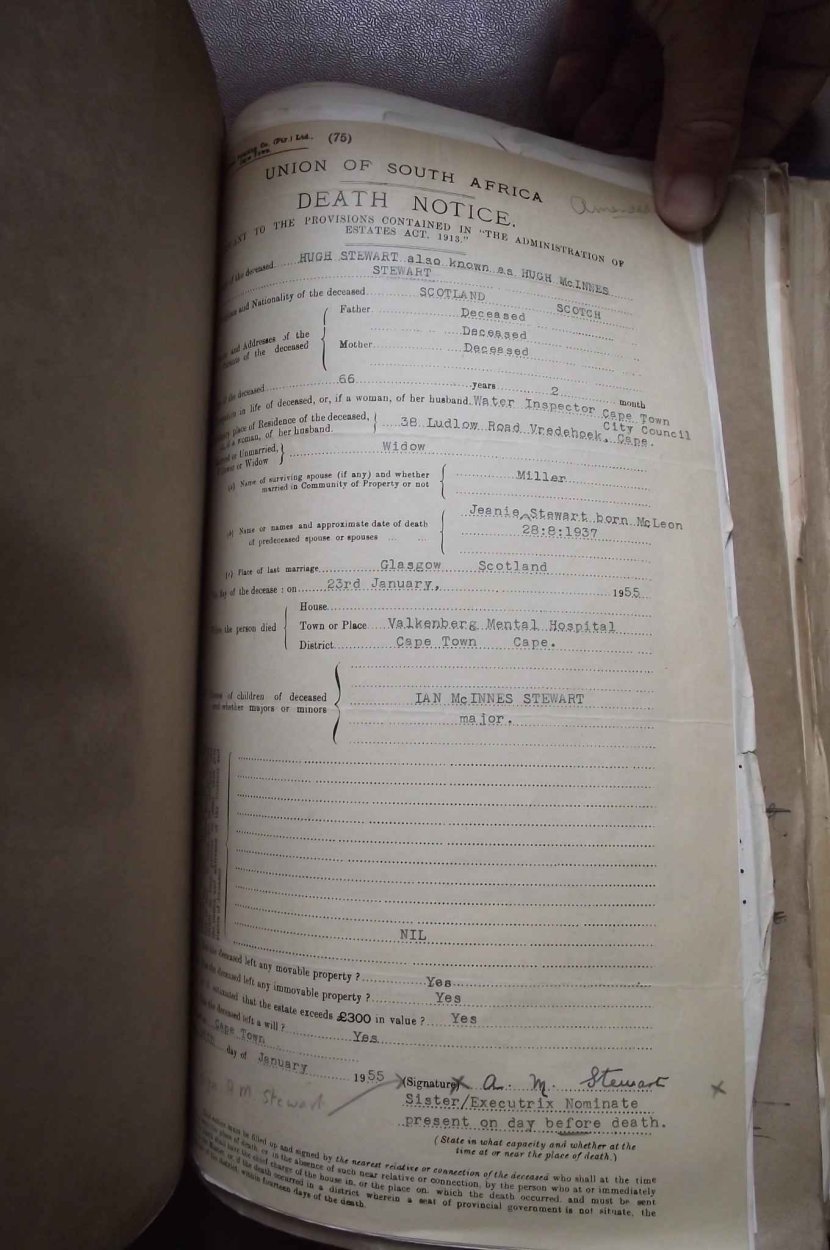 Printing Co. (Pty.) Ltd., (75)
Cape Town.
UNION OF SOUTH AFRICA
DEATH NOTICE.
TO THE PROVISIONS CONTAINED IN "THE ADMINISTRATION OF
ESTATES ACT, 1913."
of the deceased HUGH STEWART also known as HUGH McINNES
STEWART
and Nationality of the deceased SCOTLAND SCOTCH
Father Deceased
and Addresses of the Deceased
of the deceased Mother Deceased
of the deceased 66 years 2 month
in life of deceased, or, if a woman, of her husband. Water Inspector Cape Town
City Council
place of Residence of the deceased, 38 Ludlow Road Vredehoek, Cape.
if a woman, of her husband.
or Unmarried, Widow
or Widow
(a) Name of surviving spouse (if any) and whether Miller
married in Community of Property or not
Jeanie Stewart born McLeon
(b) Name or names and approximate date of death 28:8:1937
of predeceased spouse or spouses
(c) Place of last marriage Glasgow Scotland
of the decease : on 23rd January, 1955
House
the person died Town or Place Valkenberg Mental Hospital
District Cape Town Cape.
of children of deceased IAN McINNES STEWART
and whether majors or minors major.
NIL
deceased left any movable property ? Yes
deceased left any immovable property ? Yes
estimated that the estate exceeds £300 in value ? Yes
deceased left a will ? Yes
Cape Town
day of January 1955 (Signature) A. M. Stewart
Sister/Executrix Nominate
present on day before death.
A M Stewart
(State in what capacity and whether at the
time at or near the place of death.)
must be filled up and signed by the nearest relative or connection of the deceased who shall at the time
of death, or in the absence of such near relative or connection, by the person who at or immediately
shall have the chief charge of the house in, or the place on, which the death occurred, and must be sent
or if the death occurred in a district wherein a seat of provincial government is not situate, the
district, within fourteen days of the death.